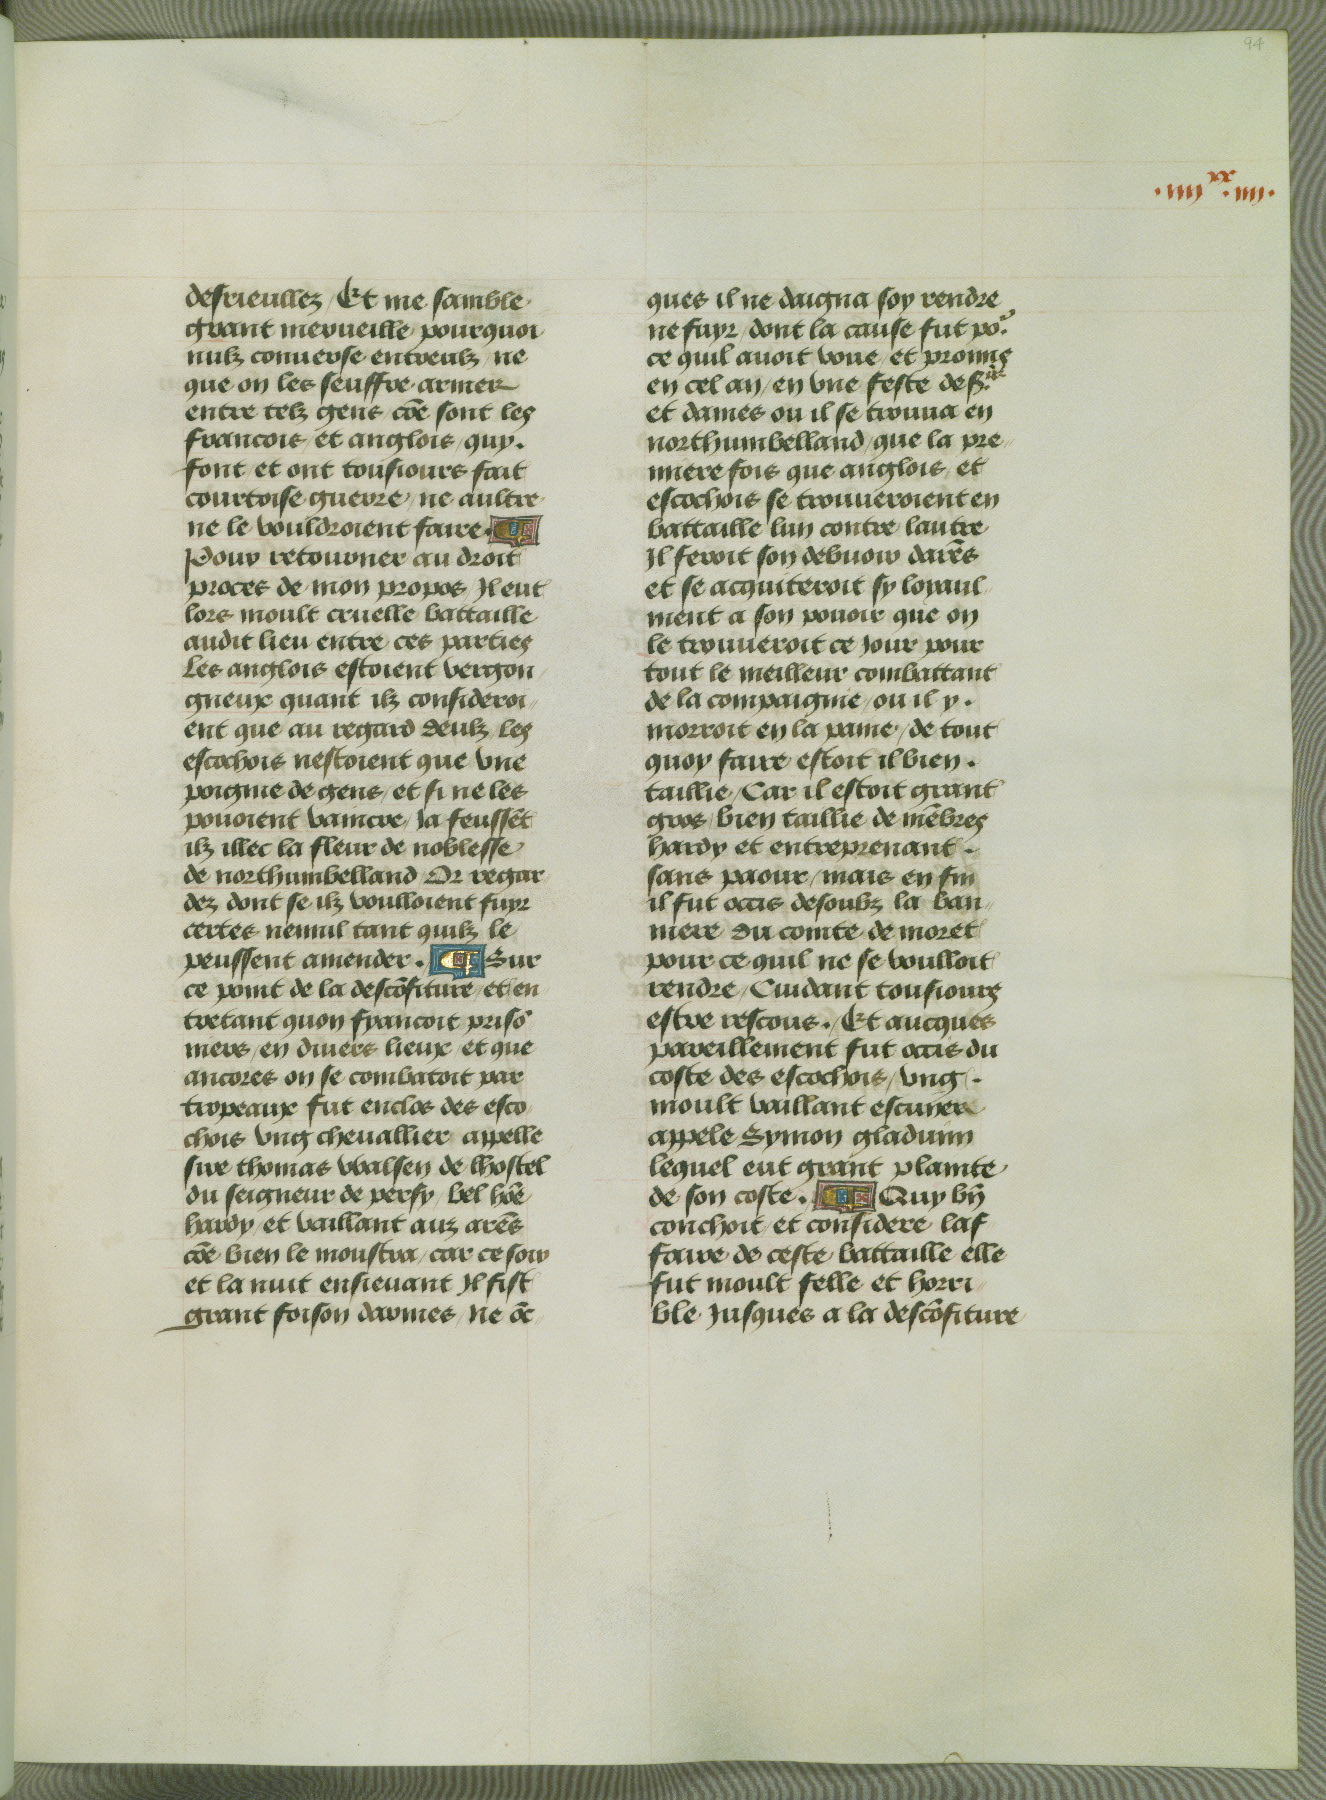 94
·iiij xx·iiij·
desrieullez / Et me samble
grant merueille pourquoi
nulz conuerse entreulz / ne
que on les seuffre armer
entre telz gens cõe sont les
francois / et anglois / quy .
font et ont tousiours fait
courtoise guerre / ne aultre
ne le vouldroient faire .
Pour retourner au droit
proces de mon propos / Il eut
lors moult cruelle battaille
audit lieu entre ces parties
Les anglois estoient vergon
gneux quant ilz consideroi
ent que au regard deulz les
escochois nestoient que vne
poignie de gens / et si ne les
pouoient vaincre / Ja feussẽt
ilz illec la fleur de noblesse
de northumbelland Or regar
dez dont se ilz voulloient fuyr
certes nennil tant quilz le
peussent amender . Sur
ce point de la descõfiture / et en
tretant quon francoit prisõ
niers / en diuers lieux / et que
ancores on se combatoit par
tropeaux fut enclos des esco
chois vng cheuallier appelle
sire thomas walsen de lhostel
du seigneur de persy / bel hõe
hardy / et vaillant auz armẽs
cõe bien le moustra / car ce soir
et la nuit ensieuant Il fist
grant foison darmes / ne õc
ques il ne daigna soy rendre
ne fuyr / dont la cause fut po.ʳ
ce quil auoit voue / et promis
en cel an / en vne feste de sʳˢ
et dames ou il se trouua en
northumbelland / que la pre
miere fois que anglois et
escochois se trouueroient en
battaille lun contre lautre
Il feroit son debuoir darẽs
et se acquiteroit sy loyaul
ment a son pouoir que on
le trouueroit ce Jour pour
tout le meilleur combattant
de la compaignie / ou il y .
morroit en la paine / de tout
quoy faire estoit il bien .
taillie / Car il estoit grant
gros / bien taillie de mẽbres
hardy et entreprenant .
sans paour / mais en fin
il fut occis desoubz la ban
niere du comte de moret
pour ce quil ne se voulloit
rendre / Cuidant tousiours
estre rescous . / Et aucques
pareillement fut occis du
coste des escochois / vng .
moult vaillant escuyer
appele Symon gladuin
lequel eut grant plainte
de son coste . Quy bñ
conchoit et considere laf
faire de ceste battaille elle
fut moult felle et horri
ble Jusques a la descõfiture